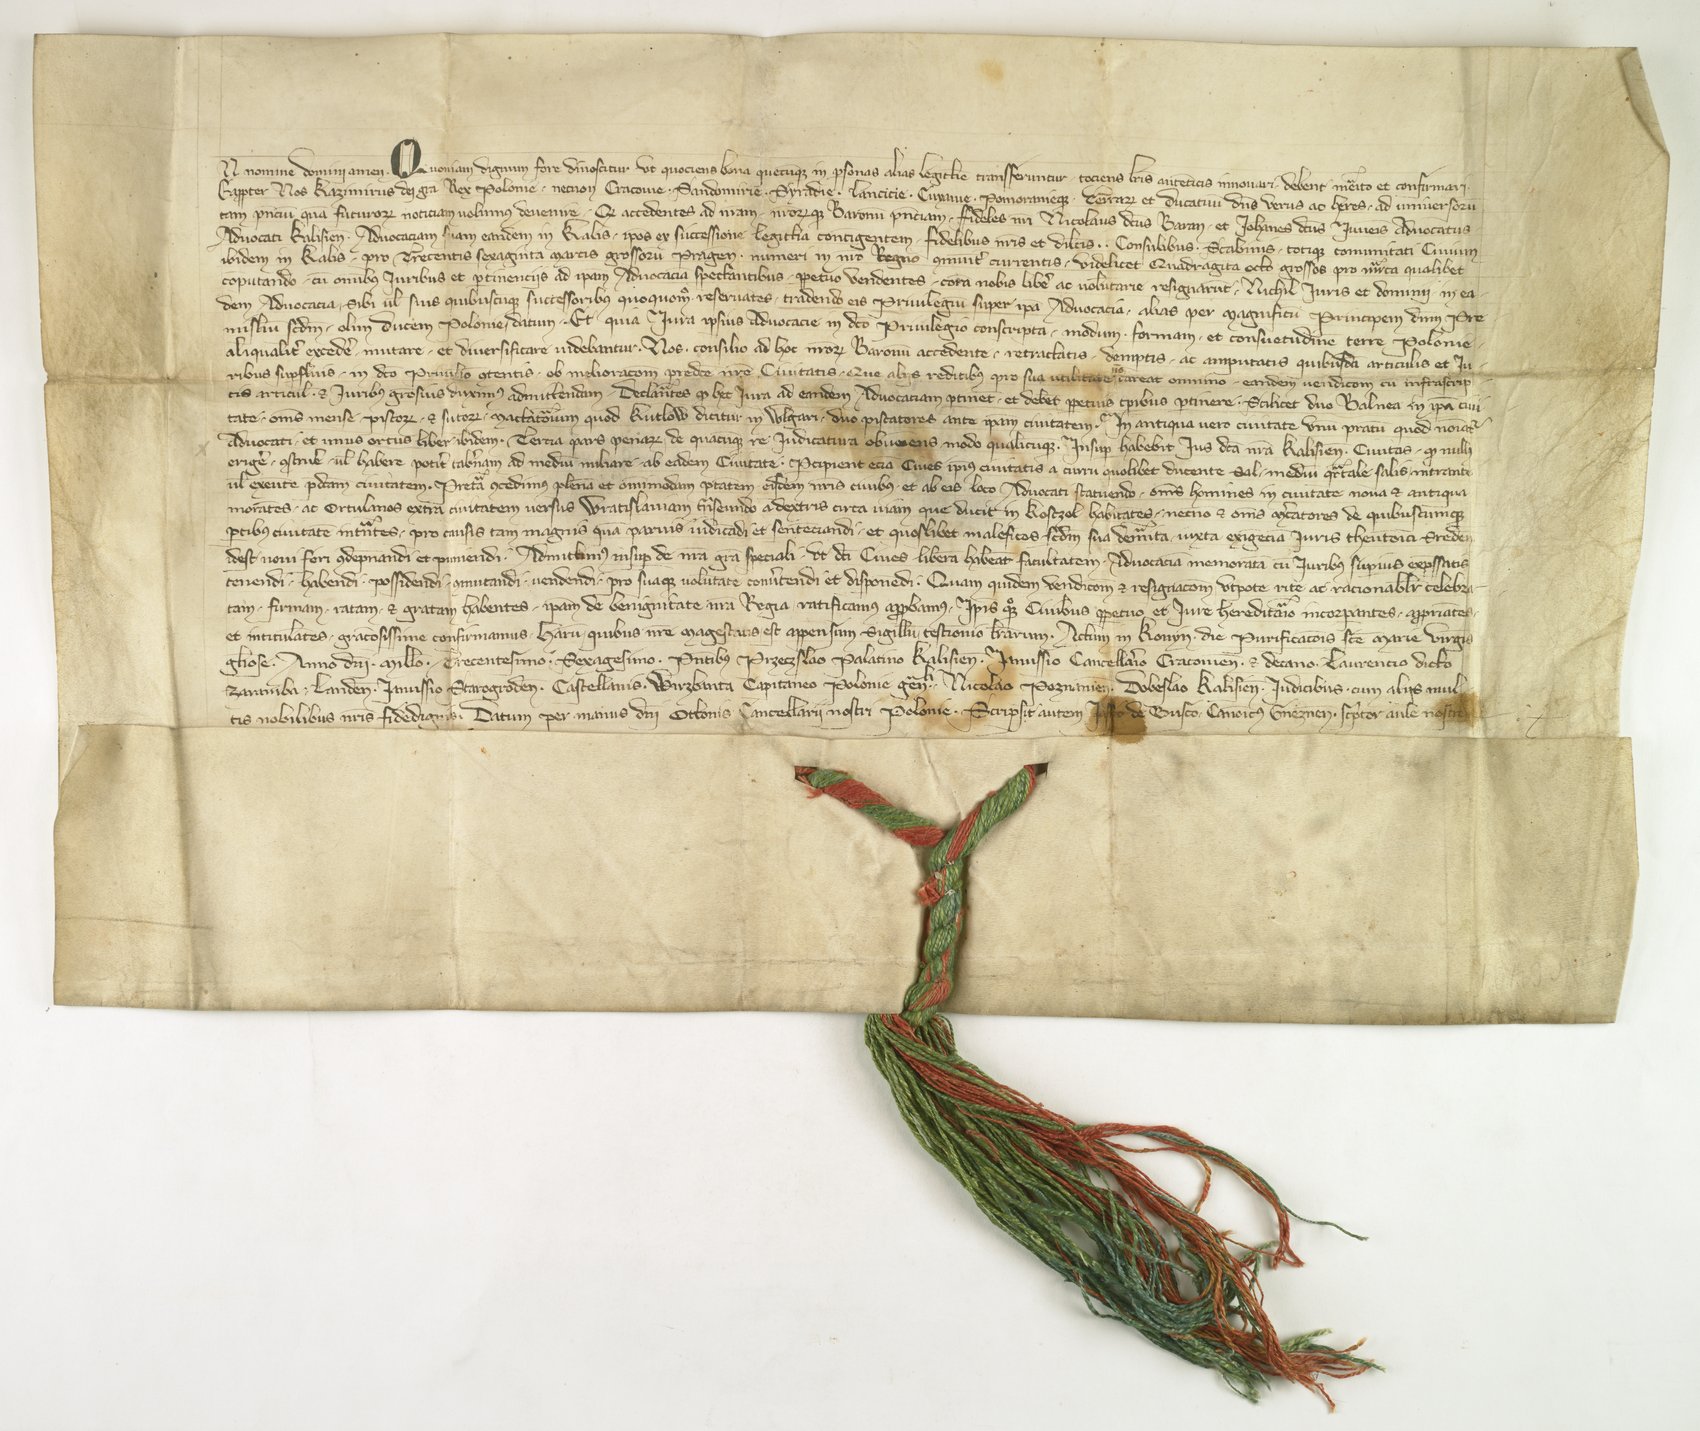 N nomine domini amen. Quoniam dignum fore dinoscitur vt quociens bona quecu͂q͛ in p͛sonas alias legitti͂e transfferuntur tociens lr͂is autenticis innouari debent m͛ito et confirmari.
Eapp͛ter Nos Kazimirus dei gr͂a Rex Polonie. necnon Cracouie. Sandomirie. Syradie. Lancicie. Cuyauie. Pomoranieq͛. Terrarꝝ et Ducatuu͂ dn͂s verus ac h͛es. ad vniuersoru͂
tam pn͂ciu͂ qua͂ futurorꝝ noticiam volumus deuenire. Qd͛ accedentes ad nr͂am. nr͂orꝝq͛ Baronu͂ pn͂ciam. fideles nr͂i Nicolaus dc͂us Baran. et Joha͂nes dc͂us Juuenis Aduocatus
Aduocati Kalisien͂. Aduocaciam suam eandem in Kalis. ip͂os ex successione legitti͂a contigentem. fidelibus nr͂is et dil͂cis.. Consulibus. Scabinis. totiq͛ comunitati Ciuium
ibidem in Kalis. pro Trecentis sexaginta marcis grossoru͂ Prage͂n. numeri in nr͂o Regno co͂muit͛ currentis. videlicet Quadragi͂ta octo grossos pro marca qualibet
computando. cu͂ om͂ibus Juribus et p͛tinencijs ad ip͂am Aduocacia͂ spectantibus. p͛petuo vendentes. cora͂ nobis lib͛e ac volu͂tarie resignaru͂t. Nichil Juris et dominij in ea-
dem Aduocacia. sibi vl͛ suis quibuscu͂q͛ successoribus quoquom͛o reseruantes. tradendo eis Priuilegiu͂ super ip͂a Aduocacia. alias per magnificu͂ Principem dn͂m Pre-
misliu͂ sc͛dm͂. olim ducem Polonie datum. Et quia Jura ipsius Aduocacie in dc͂o Priuilegio conscripta. modum. formam. et consuetudine͂ terre Polonie.
aliqualit͛ excede͛. mutare. et diuersificare videbantur. Nos. consilio ad hoc nr͂orꝝ Baronu͂ accedente. retractatis. demptis. ac amputatis quibusda͂ articulis et Ju-
ribus sup͛fluis. in dc͂o Priuil͛io co͂tentis. ob melioraco͂em predc͂e nr͂e Ciuitatis. Que alijs redditibus pro sua vtilitate no͂ careat omnino. eandem vendico͂em cu͂ infrascrip-
tis articul͛. & Juribus grosius duximus admittendam. Declara͂tes q͛ hec Jura ad eandem Aduocaciam p͛tinent. et debent p͛petuis t͛pribus p͛tinere. Scilicet duo Balnea in ip͂a ciui-
tate. om͂is mense. pistorꝝ. & sutorꝝ. mactatorium quod Kutlow dicitur in wlgari. duo piscatores ante ip͂am ciuitatem. In antiqua vero ciuitate vnu͂ pratu͂ quod no͂iat͛
Aduocati. et vnus ortus liber ibidem. Tercia pars penarꝝ de quacu͂q͛ re Judicatura obueniens modo qualicu͂q͛. Insup͛ habebit Jus dc͂a nr͂a Kalisien͂. Ciuitas. q͛ nullus
erige͛. co͂strue͛. vl͛ habere pot͛it tab͛nam ad mediu͂ miliare. ab eadem Ciuitate. P͛cipient ecia͂ Ciues ip͂ius ciuitatis a curru quolibet ducente Sal. mediu͂ q͛rtale salis. intrante
vl͛ exeunte p͛dc͂am ciuitatem. Pret͛ea co͂cedimus plena͂ et omnimodam p͂tatem. eisdem nr͂is ciuibus. et ab eis loco Aduocati statuendo. om͂es homines in ciuitate noua & antiqua
mora͂tes. ac Ortulanos extra͂ ciuitatem versus Wratislauiam tra͂seundo a dextris circa viam que ducit in Koszzol habita͂tes. necno͂ & om͂is m͛catores de quibuscumq͛
p͛tibus ciuitate͂ intra͂tes. pro causis tam magnis qua͂ paruis iudica͂di et sente͂ciandi. et quoslibet maleficos sc͛dm͂ sua dem͛ita. iuxta exige͂cia͂ Juris theutonici Sreden͂.
idest noui fori co͂dep͂nandi et puniendi. Admittimus insup͛ de nr͂a gr͂a speciali. vt dc͂i Ciues libera͂ habea͂t facultatem. Aduocacia͂ memorata͂ cu͂ Juribus sup͛ius exp͛ssatis
tenendi. habendi. possidendi. co͂mutandi. vendendi. pro suaq͛ volu͂tate conu͛tendi et dispone͂di. Quam quidem vendico͂em & resignaco͂em vtpote rite. ac racionabil͛r celebra-
tam. firmam. ratam. & gratam habentes. ip͂am de benignitate nr͂a Regia ratificamus app͛bamus. Ip͂is q͛oq͛ Ciuibus p͛petuo et Jure hereditario incorp͛antes. app͛riantes.
et intitulantes. graciosissime confirmamus. Haru͂. quibus nr͂e magestatis est appensum Sigillu͂. testi͂onio lr͂arum. Actum in Konyn. die Purificaco͂is sc͂e Marie virgi͂s
gl͛iose. Anno dn͂i. Mill͛o. Trecentesimo. Sexagesimo. Pn͂tibus Przeczslao Palatino Kalisien͂. Janussio Cancell͛rio Cracouien͂. & decano. Laurencio dicto
Zaramba. Landen͂. Janussio Starogroden͂. Castellanis. Wirzbanta Capitaneo Polonie gen͛l͛i. Nicolao Poznanien͂. Dobeslao Kalisien͂. Judicibus. cum alijs mul-
tis nobilibus nr͂is fidedignis. Datum per manus dn͂i Ottonis Cancellarij nostri Polonie. Scripsit autem de Busco. Canoicus Gneznen͂. sc͛ptor aule nostre